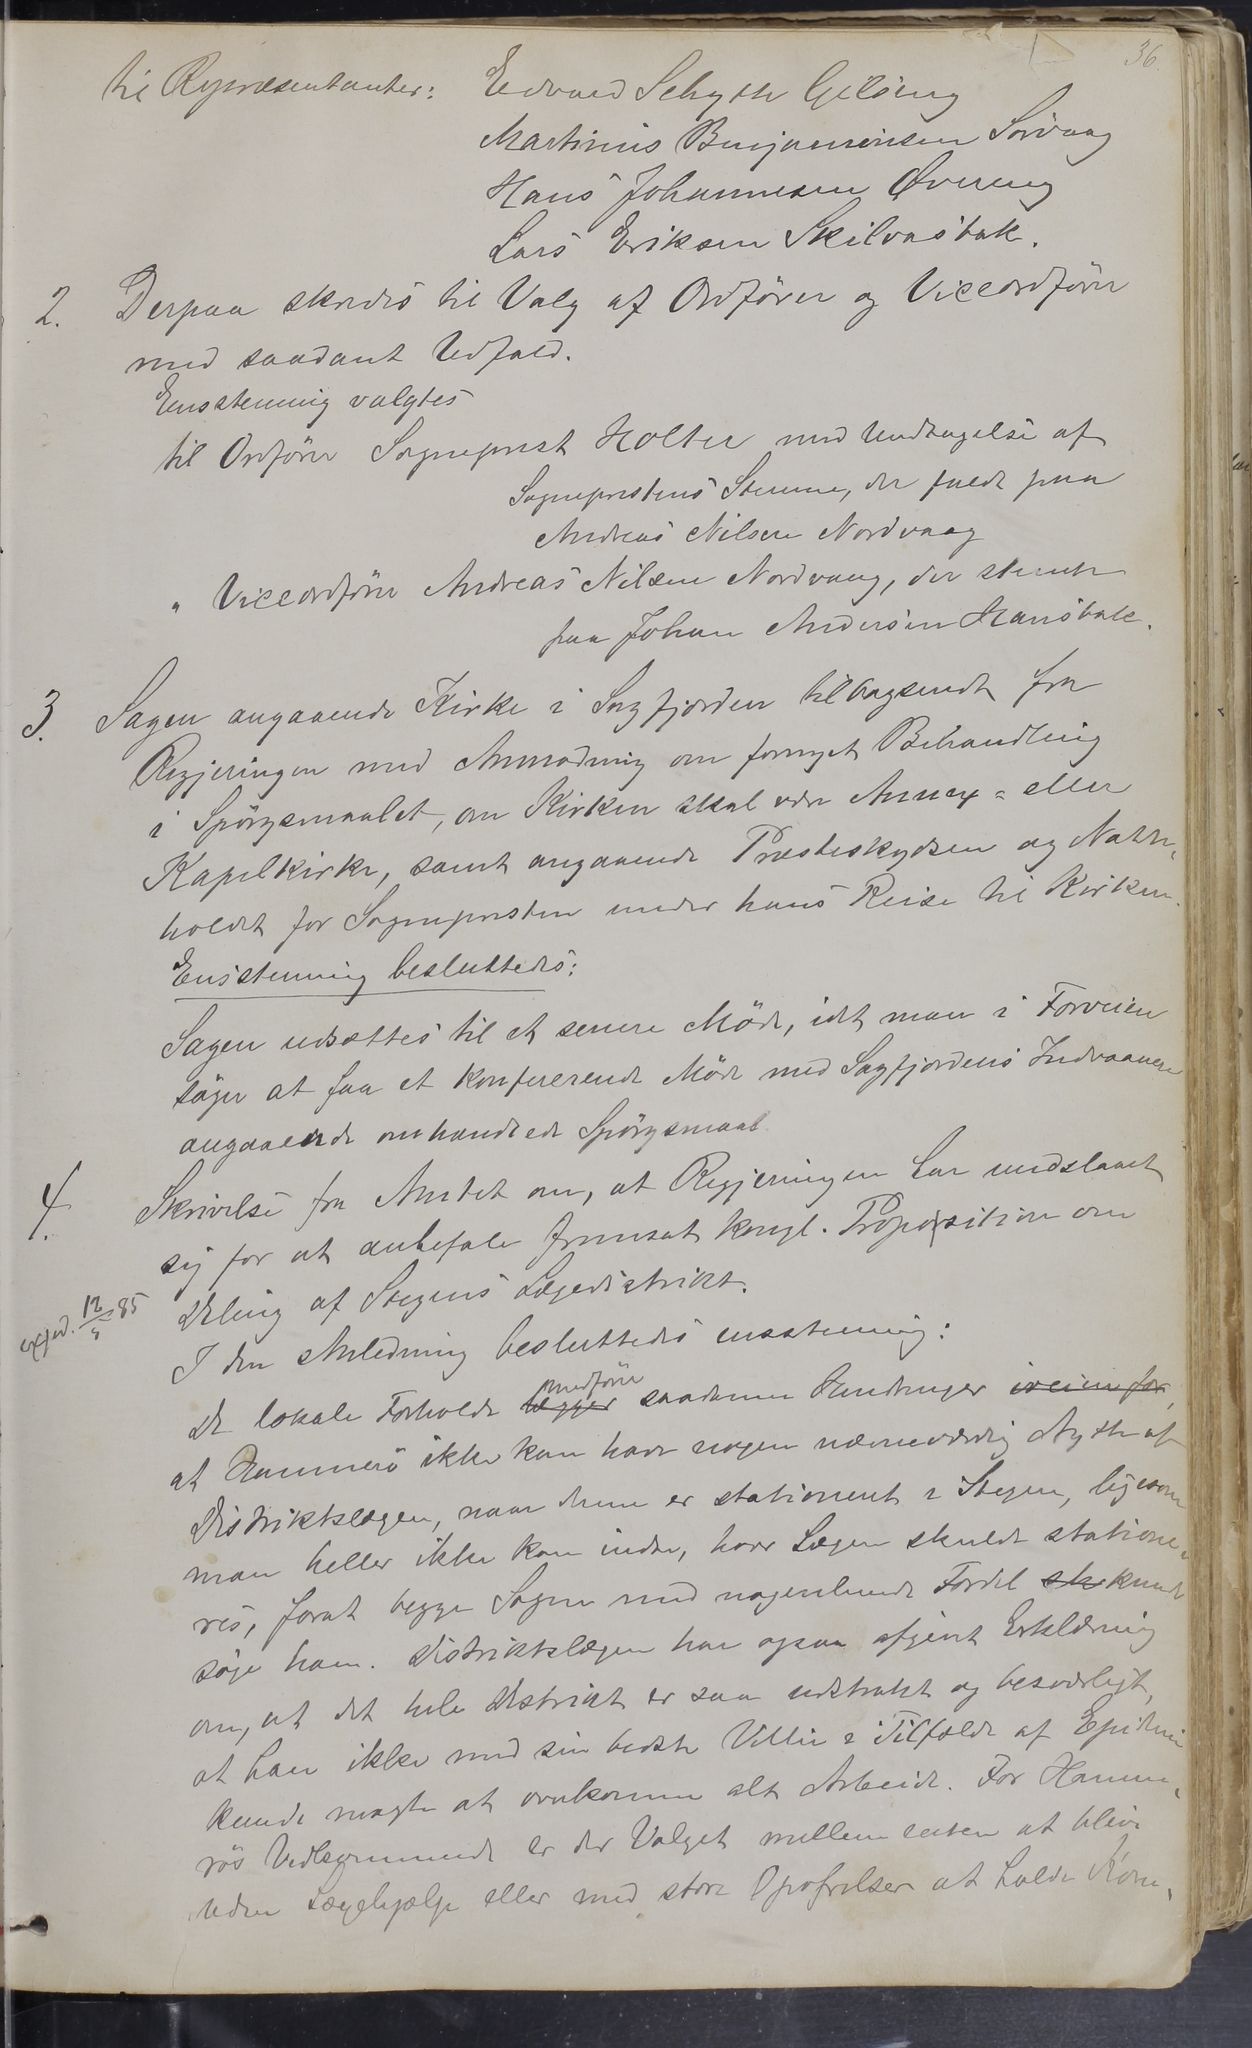 36.
til Repræsentanter: Edvard Schytte Gilsing
Martinus Benjaminsen Sørvaag
Hans Johannesen Øvereng
Lars Eriksen Skilvasbak.
2. Derpaa skredes til Valg af Ordfører og Viceordfører
med saadant Udfald.
Eensstemmig valgtes
til Ordfører Sogneprest Holter med Undtagelse af
Sogneprestens Stemme, der faldt paa
Andreas Nilsen Nordvaag
" Viceordfører Andreas Nilsen Nordvaag, der stemte
paa Johan Andersen Hansbak.
3. Sagen angaaende Kirke i Sagfjorden tilbagesendt fra
Regjeringen med Anmodning om fornyet Behandling
i Spørgsmaalet, om Kirken skal være Annex- eller
Kapelkirke, samt angaaende Præsteskydsen og Natte-
holdet for Sognepresten under hans Reise til Kirken.
Ensstemmig besluttedes:
Sagen udsættes til et senere Møde, idet man i Forveien
søger at faa et konfererende Møde med Sagfjordens Indvaanere
angaaende omhandlede Spørgsmaal
4. Skrivelse fra Amtet om, at Regjeringen har undslaaet
sig for at anbefale fremsat kongl. Proposition om
Deling af Stegens Lægedistrikt.
exped. 12/5 85
I den Anledning besluttedes ensstemmig:
De lokale Forholde lægger medfører saadanne Hindringer iveien for,
at Hammerø ikke kan have nogen nævneværdig Nytte af
Distriktslægen, naar denne er stationeret i Stegen, ligesom
man heller ikke kan indse, hvor Lægen skulde statione-
res, forat begge Sogne med nogenlunde Fordel sk kunde
søge ham. Distriktslægen har ogsaa afgivet Erklæring
om, at det hele Distrikt er saa udstrakt og besværligt,
at han ikke med sin bedste Villie i Tilfælde af Epidemi
kunde magte at overkomme alt Arbeide. For Hamme-
røs Vedkommende er der Valget mellem enten at blive
uden Lægehjælp eller med store Opofrelser at holde Kom-